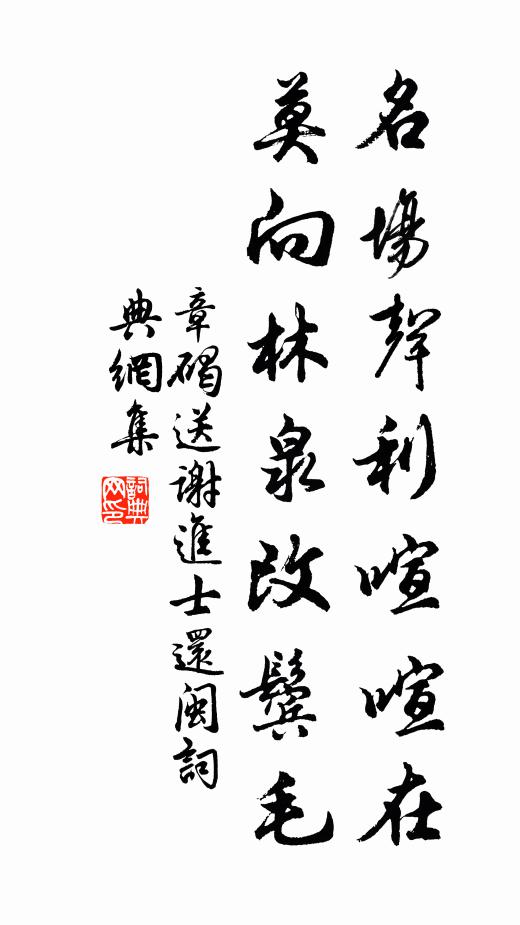 名場聲利喧喧在
莫向林泉改鬢毛
章碣送謝進士還閩詞
典網集
詞典网印